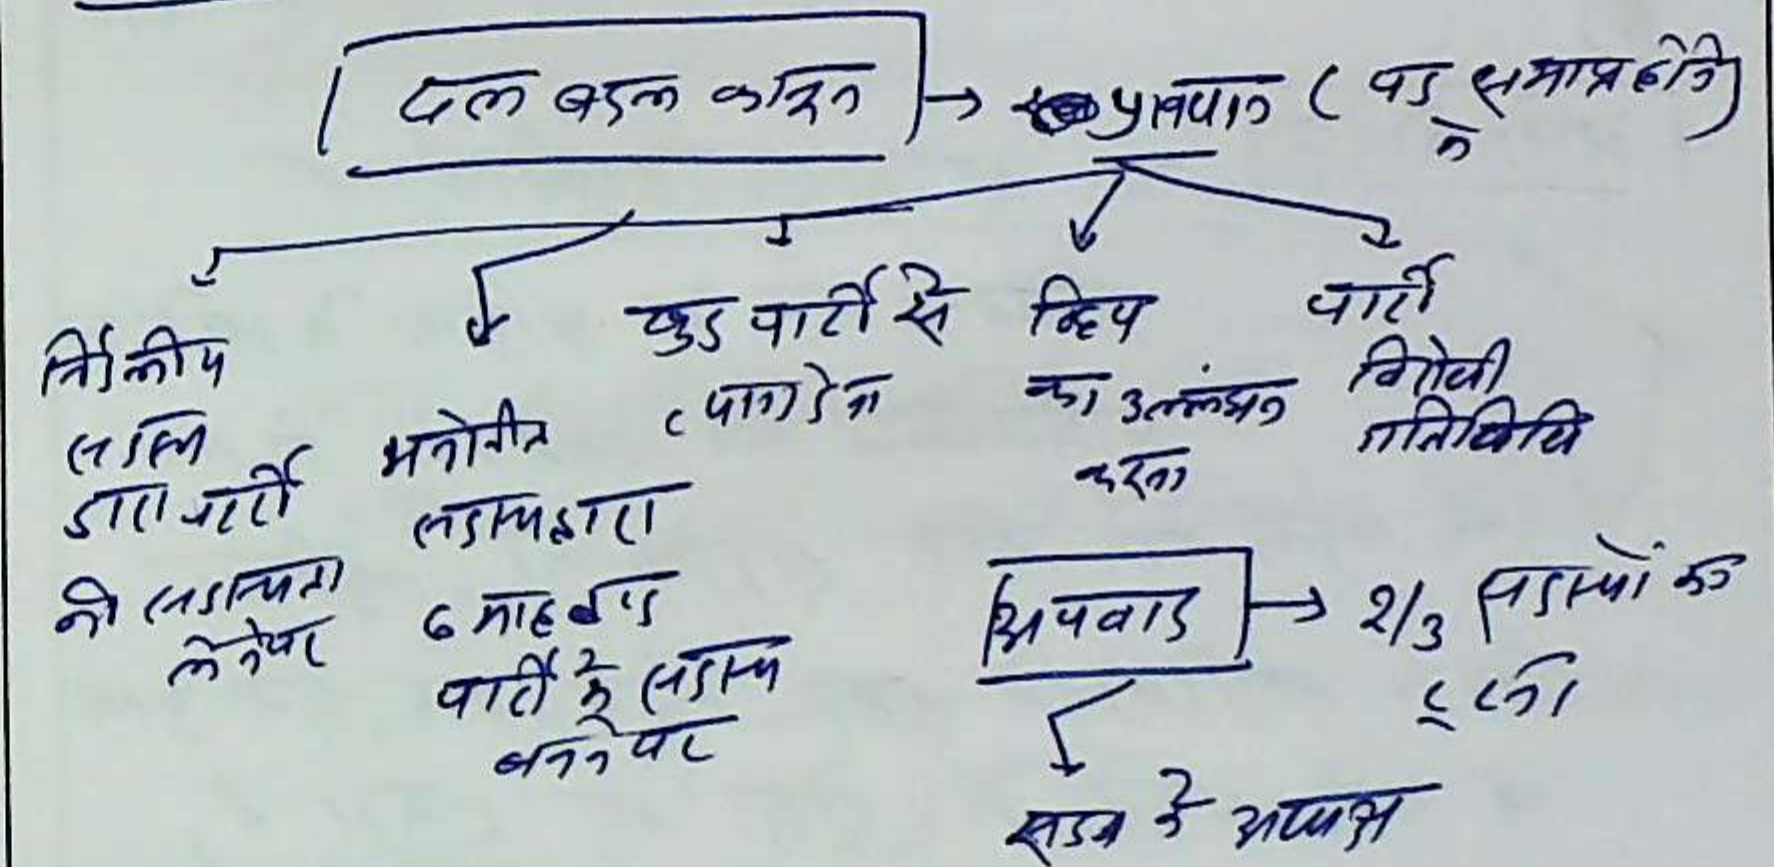 दल बदल कानून → प्रावधान (पद समाप्त होने के)
निर्दलीय
सदस्य
द्वारा पार्टी
की सदस्यता
लेने पर
मनोनीत
सदस्य द्वारा
6 माह बाद
पार्टी के सदस्य
बनने पर
खुद पार्टी से
त्याग देना
व्हिप
का उल्लंघन
करना
पार्टी
विरोधी
गतिविधि
अपवाद → 2/3 सदस्यों का
टूटना
सदन के अध्यक्ष